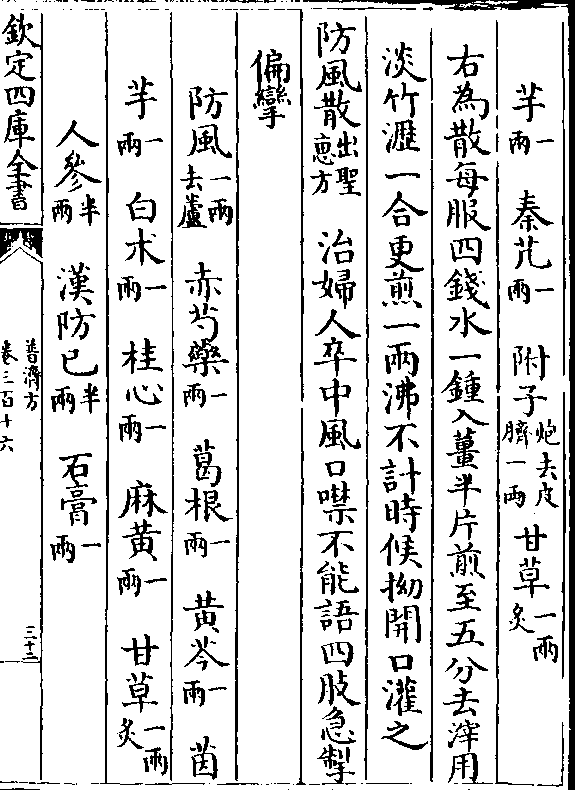 芋一兩　秦艽一兩　附子炮去皮臍一兩　甘草一兩炙
右為散每服四錢水一鍾入薑半片煎至五分去滓用
淡竹瀝一合更煎一兩沸不計時候拗開口灌之
防風散出聖惠方　治婦人卒中風口噤不能語四肢急掣
偏攣
防風一兩去蘆　赤芍藥一兩　葛根一兩　黄芩一兩　茵
芋一兩　白术一兩　桂心一兩　麻黄一兩　甘草一兩炙
人參半兩　漢防己半兩　石膏一兩
欽定四庫全書
普濟方
卷三百十六
三十二